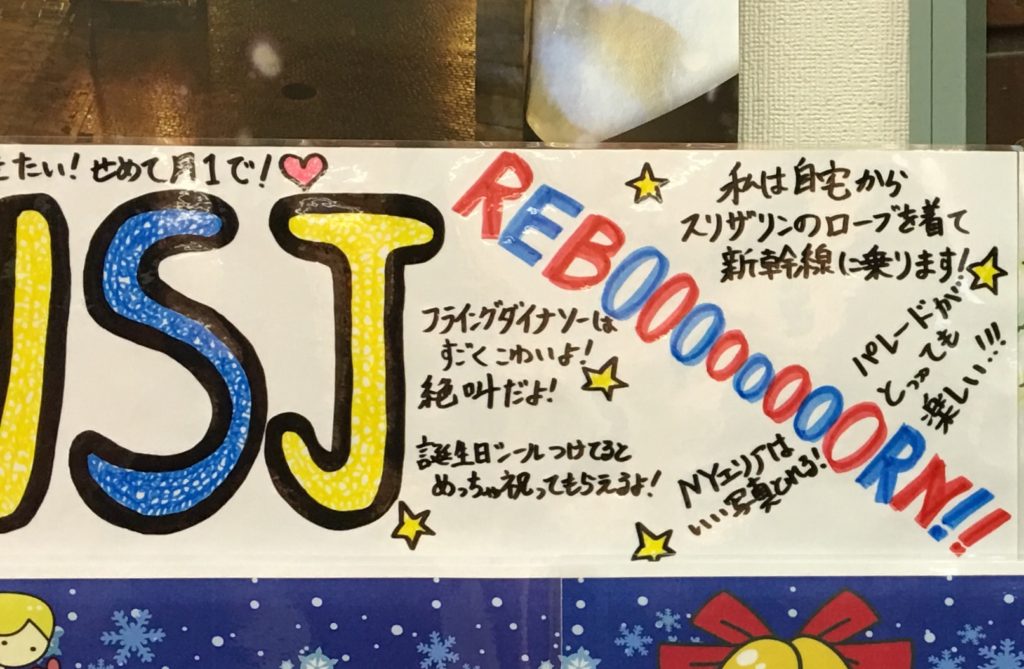 たい!せめて月1で!
USJ
REBOOOOOOOORN!!
私は自宅から
スリザリンのローブを着て
新幹線に乗ります!
フライングダイナソーは
すごくこわいよ!
絶叫だよ!
パレードが…
とっても
楽しい…!!!
誕生日シールつけてると
めっちゃ祝ってもらえるよ!
NYエリアは
いい写真とれる!